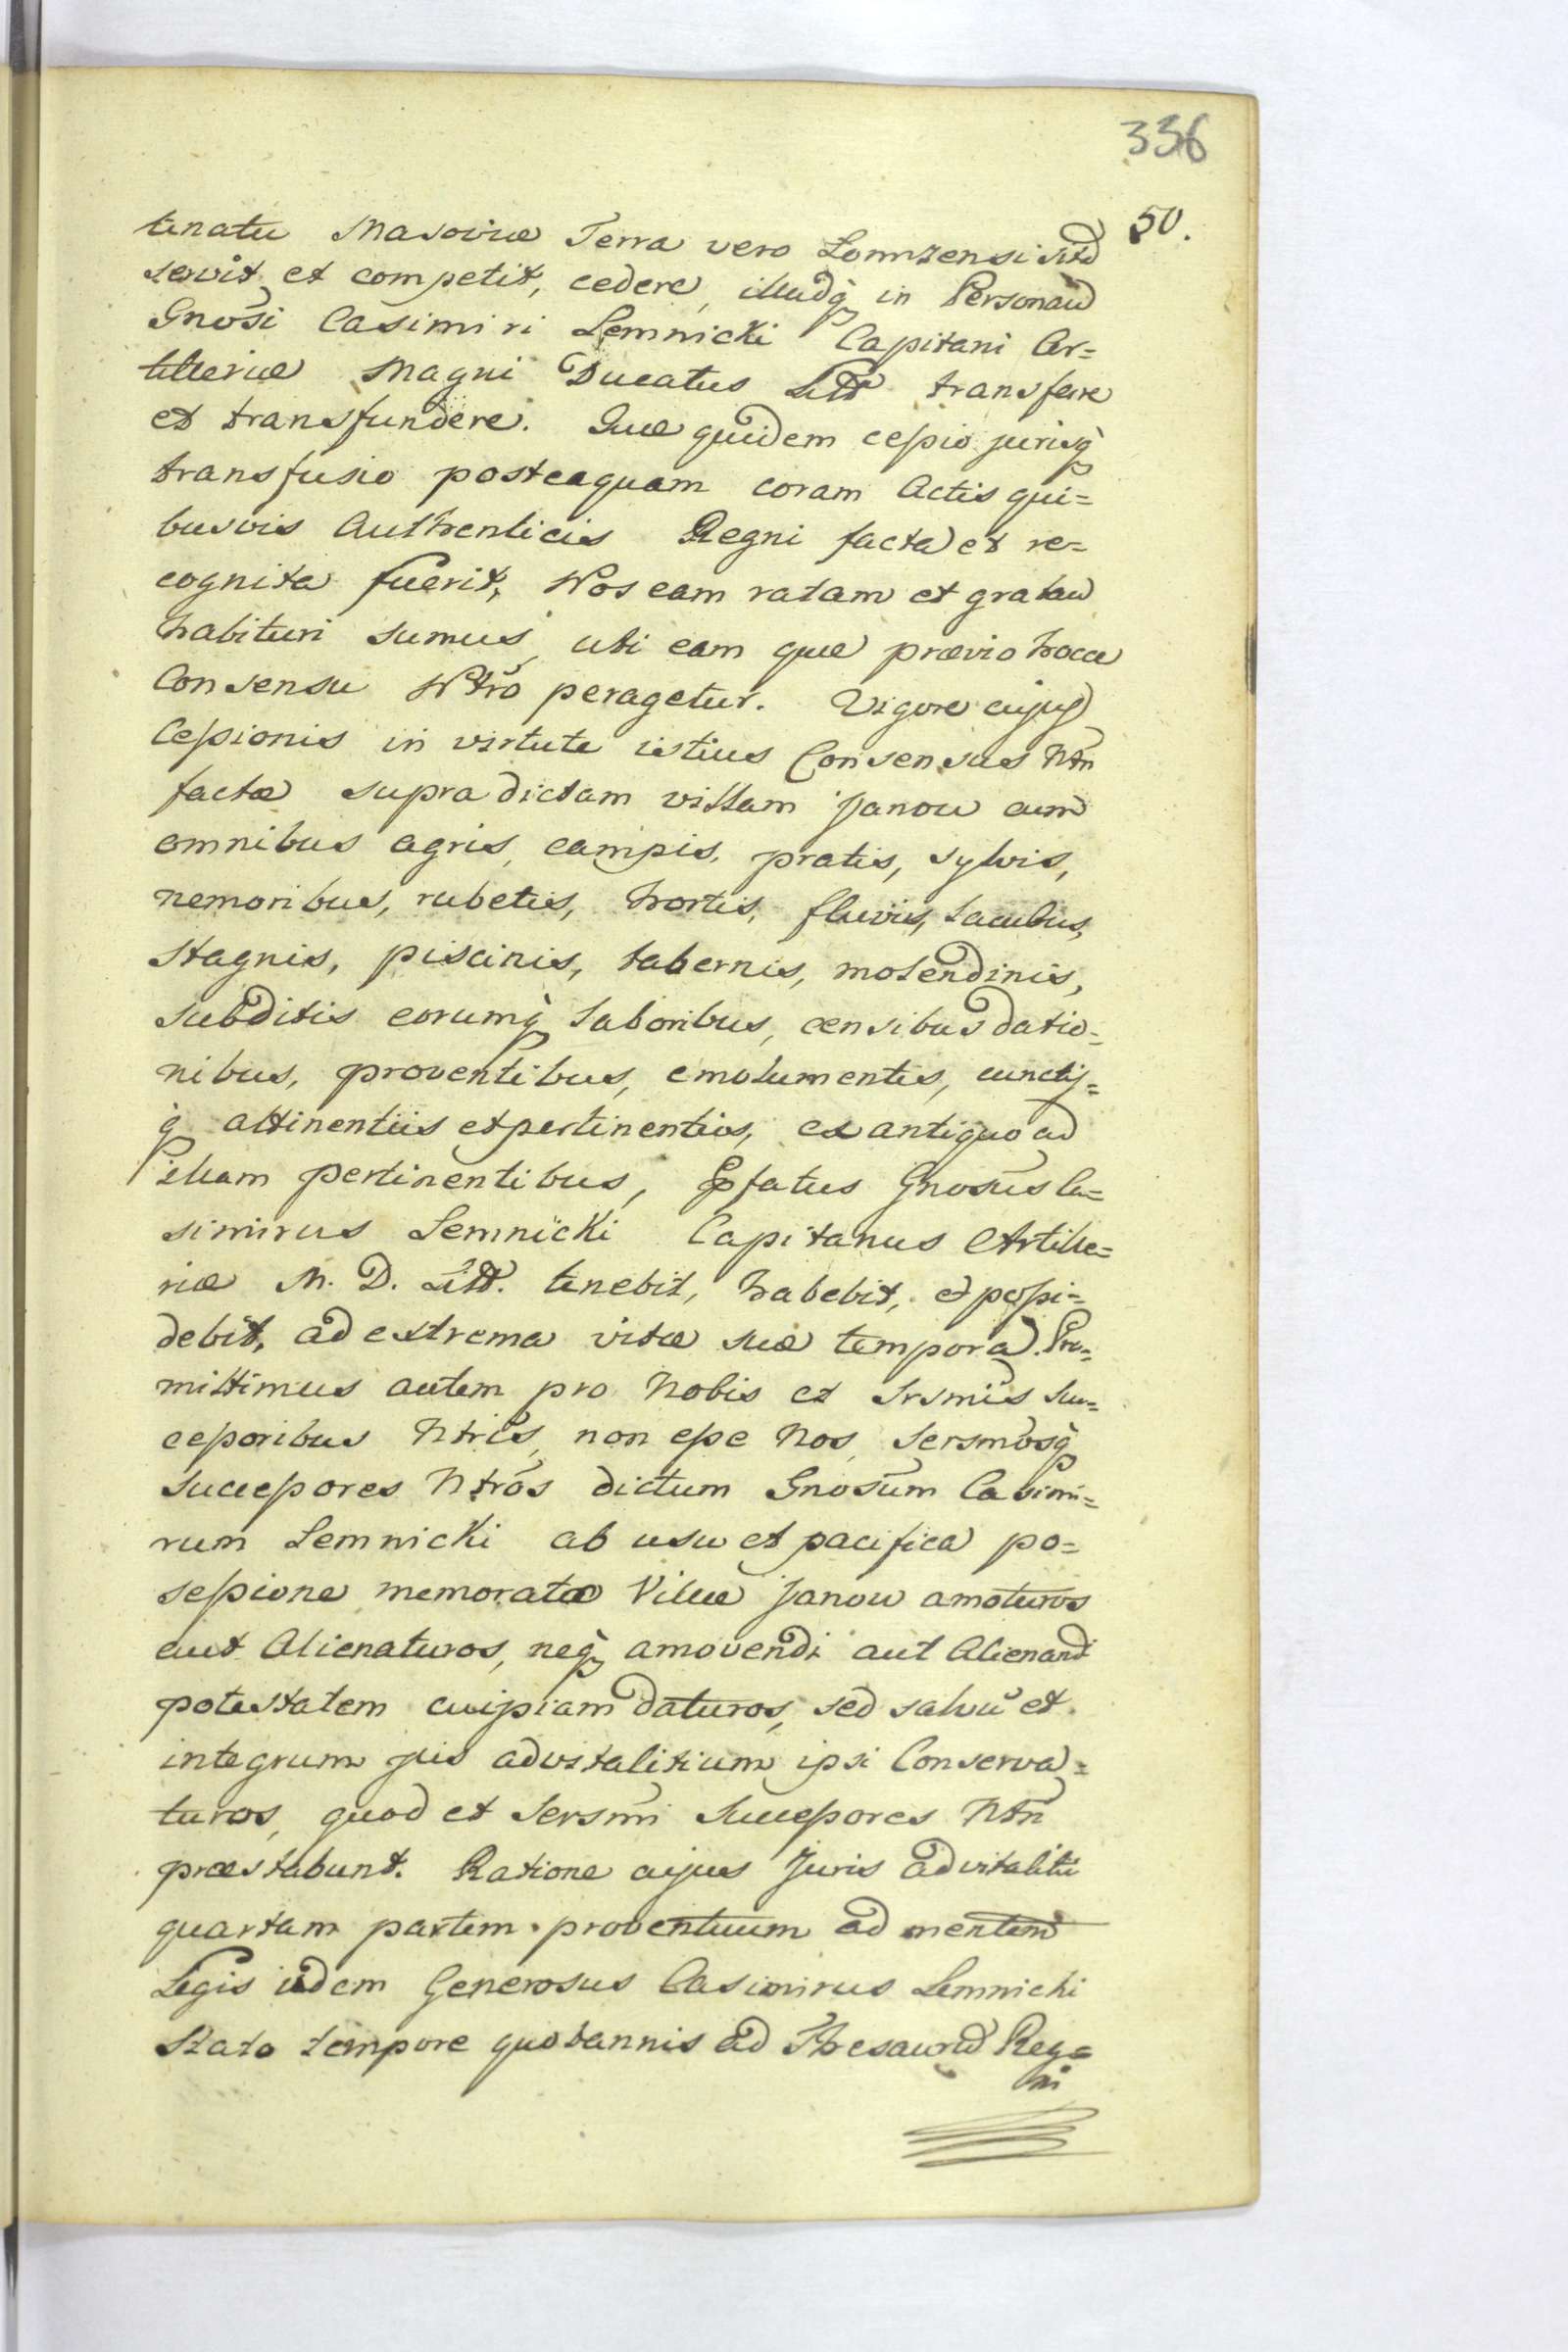 336
50.
tinatu Masoviæ Terra vero Lomzensi sitd
servit et competit, cedere, illudq̀ in Personam̄
Gnōsi Casimiri Lemnicki Capitani Ar=
tilleriæ Magni Ducatus Litt transferre
et transfundere. Quæ quidem cessio jurisq̀
transfusio posteaquam coram Actis qui=
busvis Authenticis Regni facta et re=
cognita fuerit, Nos eam ratam et gratam
habituri sumus, uti eam quæ prævio hocce
Consensu Ntrō peragetur. Vigore cujus
Cessionis in virtute istius Consensus Ntri
factæ supra dictam villam Janow cum
omnibus agris, campis, pratis, sylvis,
nemoribus, rubetis, hortis, fluvis, lacubus,
stagnis, piscinis, tabernis, molendinis,
subditis eorumq̀ laboribus, censibus datio=
nibus, proventibus, emolumentis, cunctis=
q̀ attinentiis et pertinentiis, ex antiquo ad
illam pertinentibus, Pfatus Gnosūs Ca=
simirus Lemnicki Capitanus Artille=
riæ M. D. Litt. tenebit, habebit, et possi=
debit, ad extrema vitæ suæ tempora. Pro=
mittimus autem pro Nobis et Srsmīs Suc=
cessoribus Ntrīs, non esse Nos, Sersmōsq̀
Successores Ntrōs dictum Gnosūm Casimi=
rum Lemnicki ab usu et pacifica po=
sessione memoratæ Villæ Janow amoturos
aut Alienaturos, neq̀ amovendi aut Alienandi
potestatem cuipiam daturos, sed salvū et
integrum jus advitalitium ipsi Conserva=
turos, quod et Sersmī Successores Ntrī
præstabunt. Ratione cujus Juris advitalitii
quartam partem proventuum ad mentem
Legis idem Generosus Casimirus Lemnicki
Stato tempore quotannis ad Thesaurū Reg=
ni